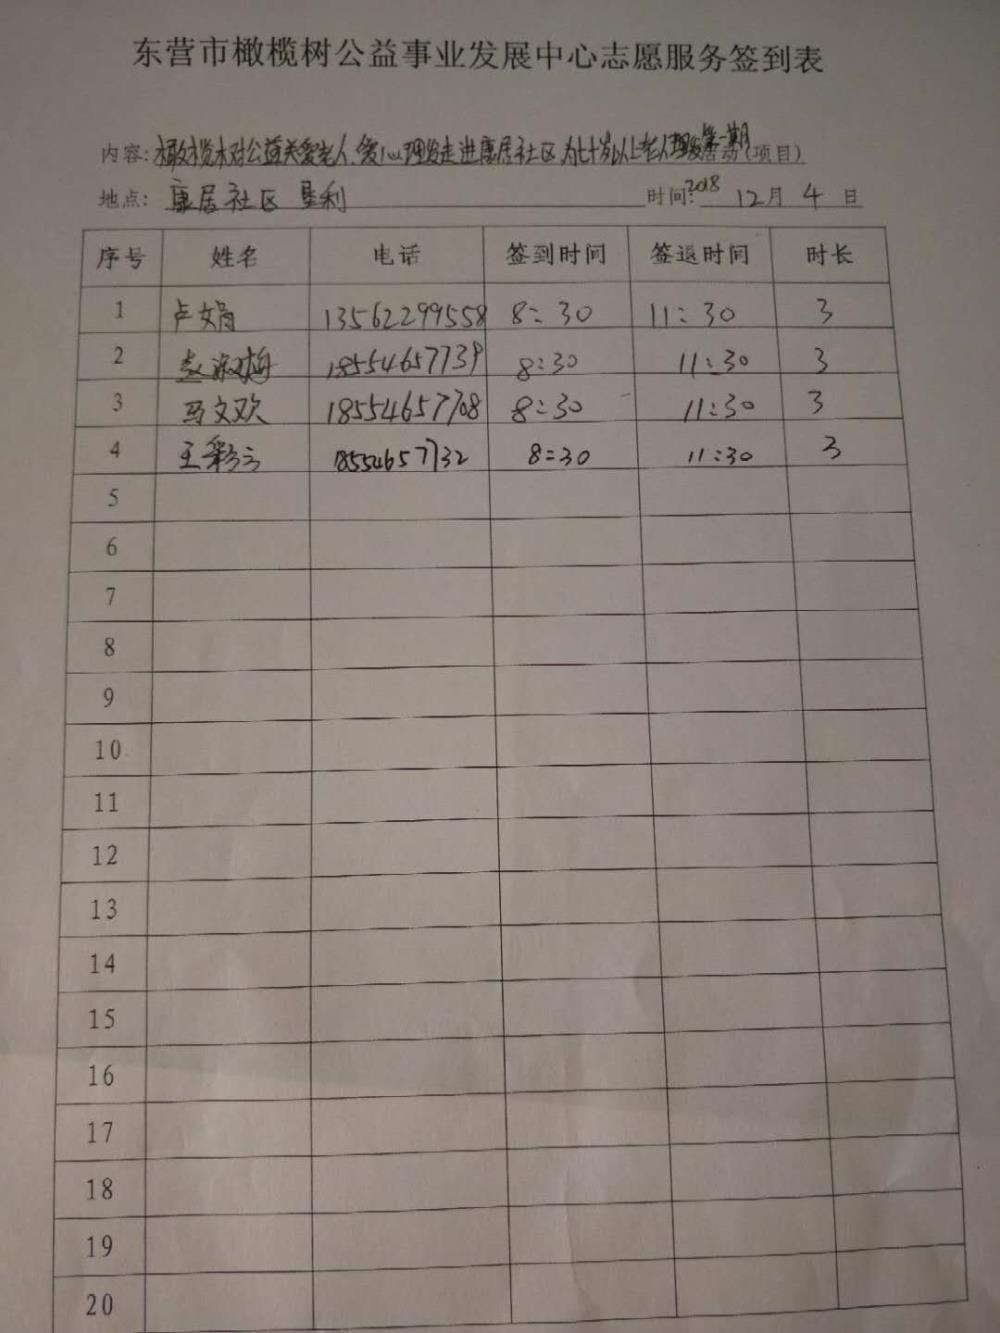 东营市橄榄树公益事业发展中心志愿服务签到表
内容:橄榄树公益关爱老人.爱心理发走进康居社区为七十岁以上老人理发第一期活动(项目)
地点:康居社区 垦利 时间:2018 12月 4 日
序号 姓名 电话 签到时间 签退时间 时长
1 卢文娟 13562299558 8:30 11:30 3
2 赵淑梅 18554657739 8:30 11:30 3
3 马文欢 18554657708 8:30 11:30 3
4 王彩云 18554657732 8:30 11:30 3
5
6
7
8
9
10
11
12
13
14
15
16
17
18
19
20